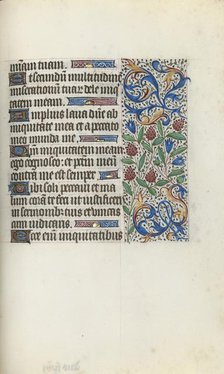 miam tuam.
Et scdm multitudine
miserationu tuar dele iniqui
tatem meam.
Amplius lava me ab
iniquitate mea et a peccato
meo munda me.
ego cognosco: et
contra me est semper
Tibi soli peccavi et ma
coram te feci ut iustificeris
in sermonib: tuis et vincas
cum iudicaris.
Ecce eim iniquitatibus